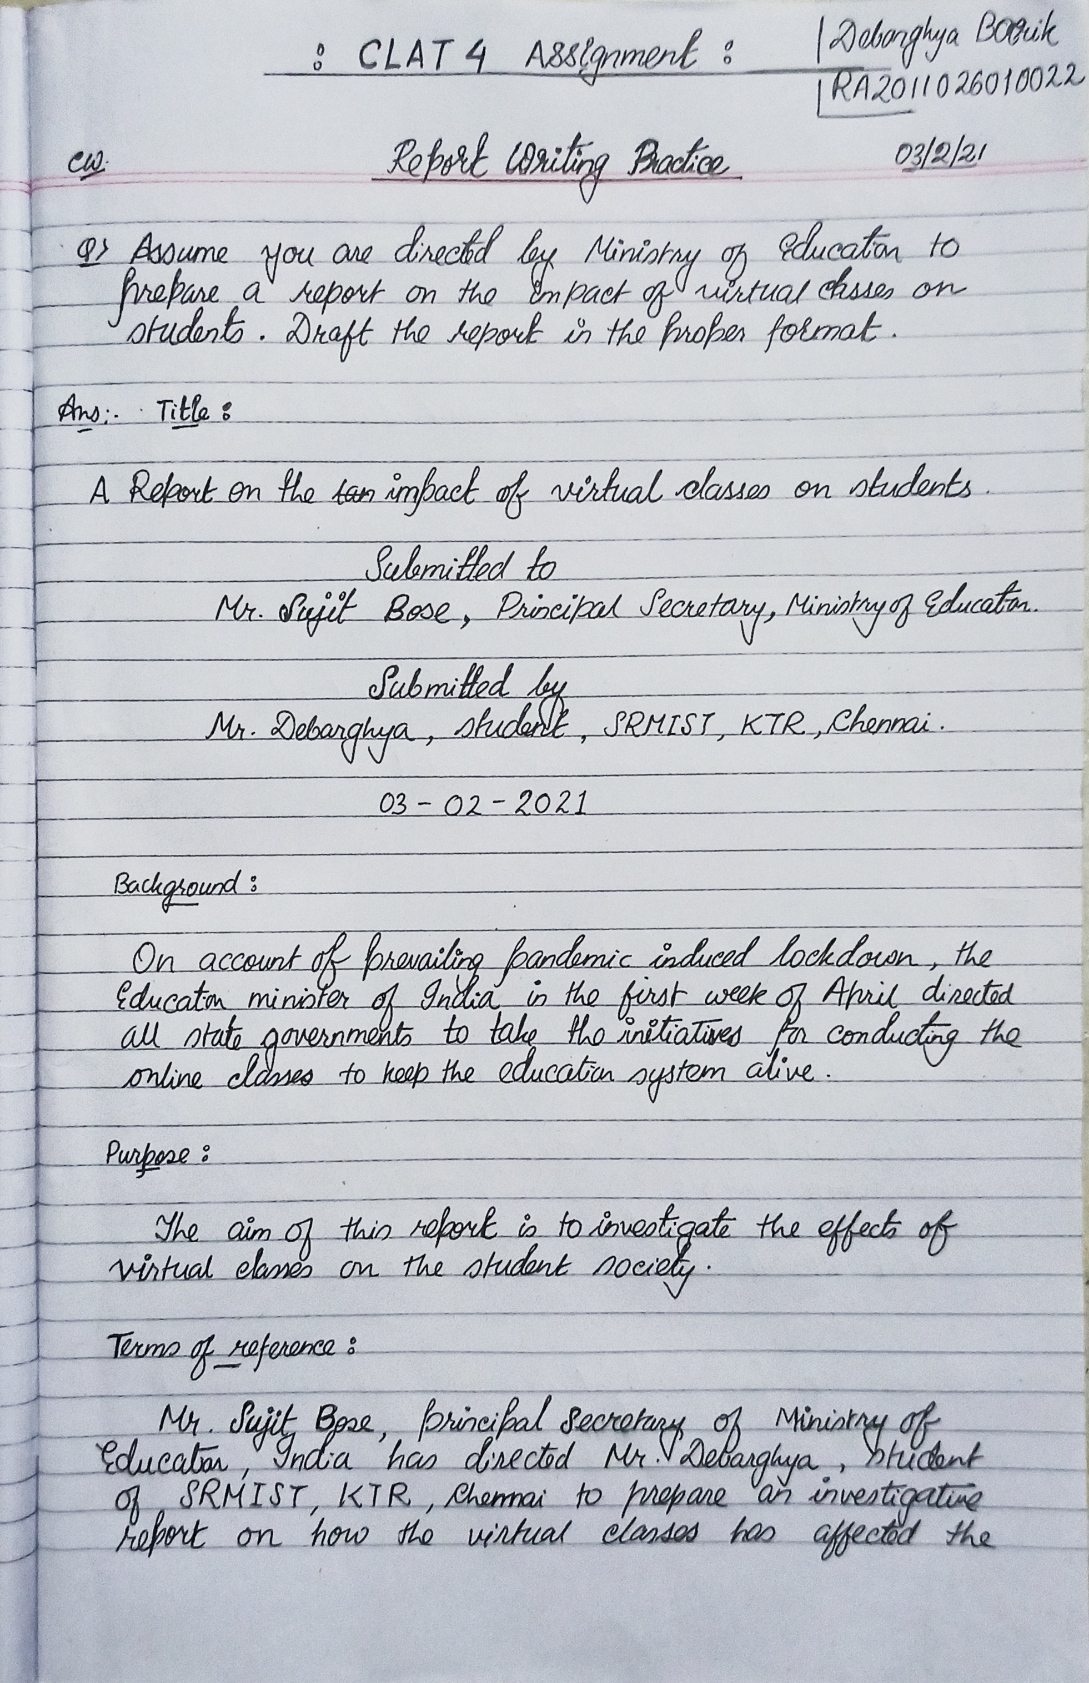 : CLAT 4 Assignment :
Debarghya
RA2011026010022
CW.
Report Writing Practice
03/2/21
Q> Assume you are directed by Ministry of Education to
prepare a report on the impact of virtual classes on
students. Draft the report in the proper format.
Ans:- Title :
A Report on the impact of virtual classes on students.
Submitted to
Mr. Sujit Bose, Principal Secretary, Ministry of Education.
Submitted by
Mr. Debarghya, student, SRMIST, KTR, Chennai.
03-02-2021
Background :
On account of prevailing pandemic induced lockdown, the
Education minister of India in the first week of April directed
all state governments to take the initiatives for conducting the
online classes to keep the education system alive.
Purpose :
The aim of this report is to investigate the effects of
virtual classes on the student society.
Terms of reference :
Mr. Sujit Bose, principal secretary of Ministry of
Education, India has directed Mr. Debarghya, student
of SRMIST, KTR, Chennai to prepare an investigative
report on how the virtual classes has affected the